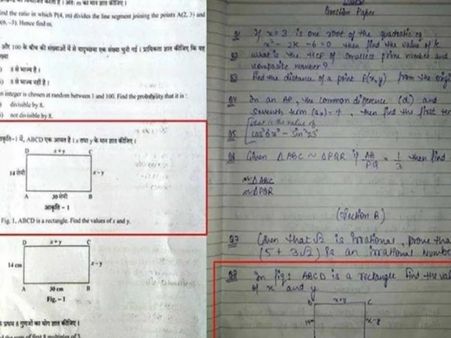 find the ratio in which P(4, m) divides the line segment joining the points A(2, 3) and
B(6, –3). Hence find m.
और 100 के बीच की संख्याओं में से यादृच्छया एक संख्या चुनी गई । प्रायिकता ज्ञात कीजिए कि यह
संख्या
8 से भाज्य है ।
8 से भाज्य नहीं है ।
An integer is chosen at random between 1 and 100. Find the probability that it is :
divisible by 8.
not divisible by 8.
आकृति-1 में, ABCD एक आयत है । x तथा y के मान ज्ञात कीजिए ।
D x+y C
14 सेमी x–y
A 30 सेमी B
आकृति – 1
Fig. 1, ABCD is a rectangle. Find the values of x and y.
D x+y C
14 cm x–y
A 30 cm B
Fig. – 1
प्रथम 8 गुणजों का योग ज्ञात कीजिए ।
Question Paper
Q1 If x = 3 is one root of the quadratic eq
x² – 2K – 6 = 0 then find the value of K
Q2 what is the HCF of smallest prime number and
composite number ?
Q3 Find the distance of a point P(x,y) from the origin
Q4 In an AP, the common difference (d) and
seventh term (a₇) = 4, then find the first term
Q5 what is the value of
cos² 67° – sin² 23°
Q6 Given △ABC ~ △PQR if AB/PQ = 1/3 then find
ar △ABC
ar △PQR
(Section B)
Q7 Given that √2 is irrational, prove that
(5 + 3√2) is an irrational number
Q8 In fig 1 ABCD is a rectangle find the val
of x and y
x+y C
14 x–y